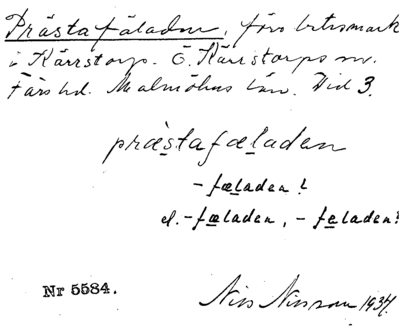 Prästafäladen, förr betesmark
i Kärrstorp. Ö. Kärrstorps sn.
Färs hd. Malmöhus län. Did 3.
præstafæladen
-fæladen!
el. -fæladen, -feladen!
Nr 5584.
Nils Nilsson 1934.